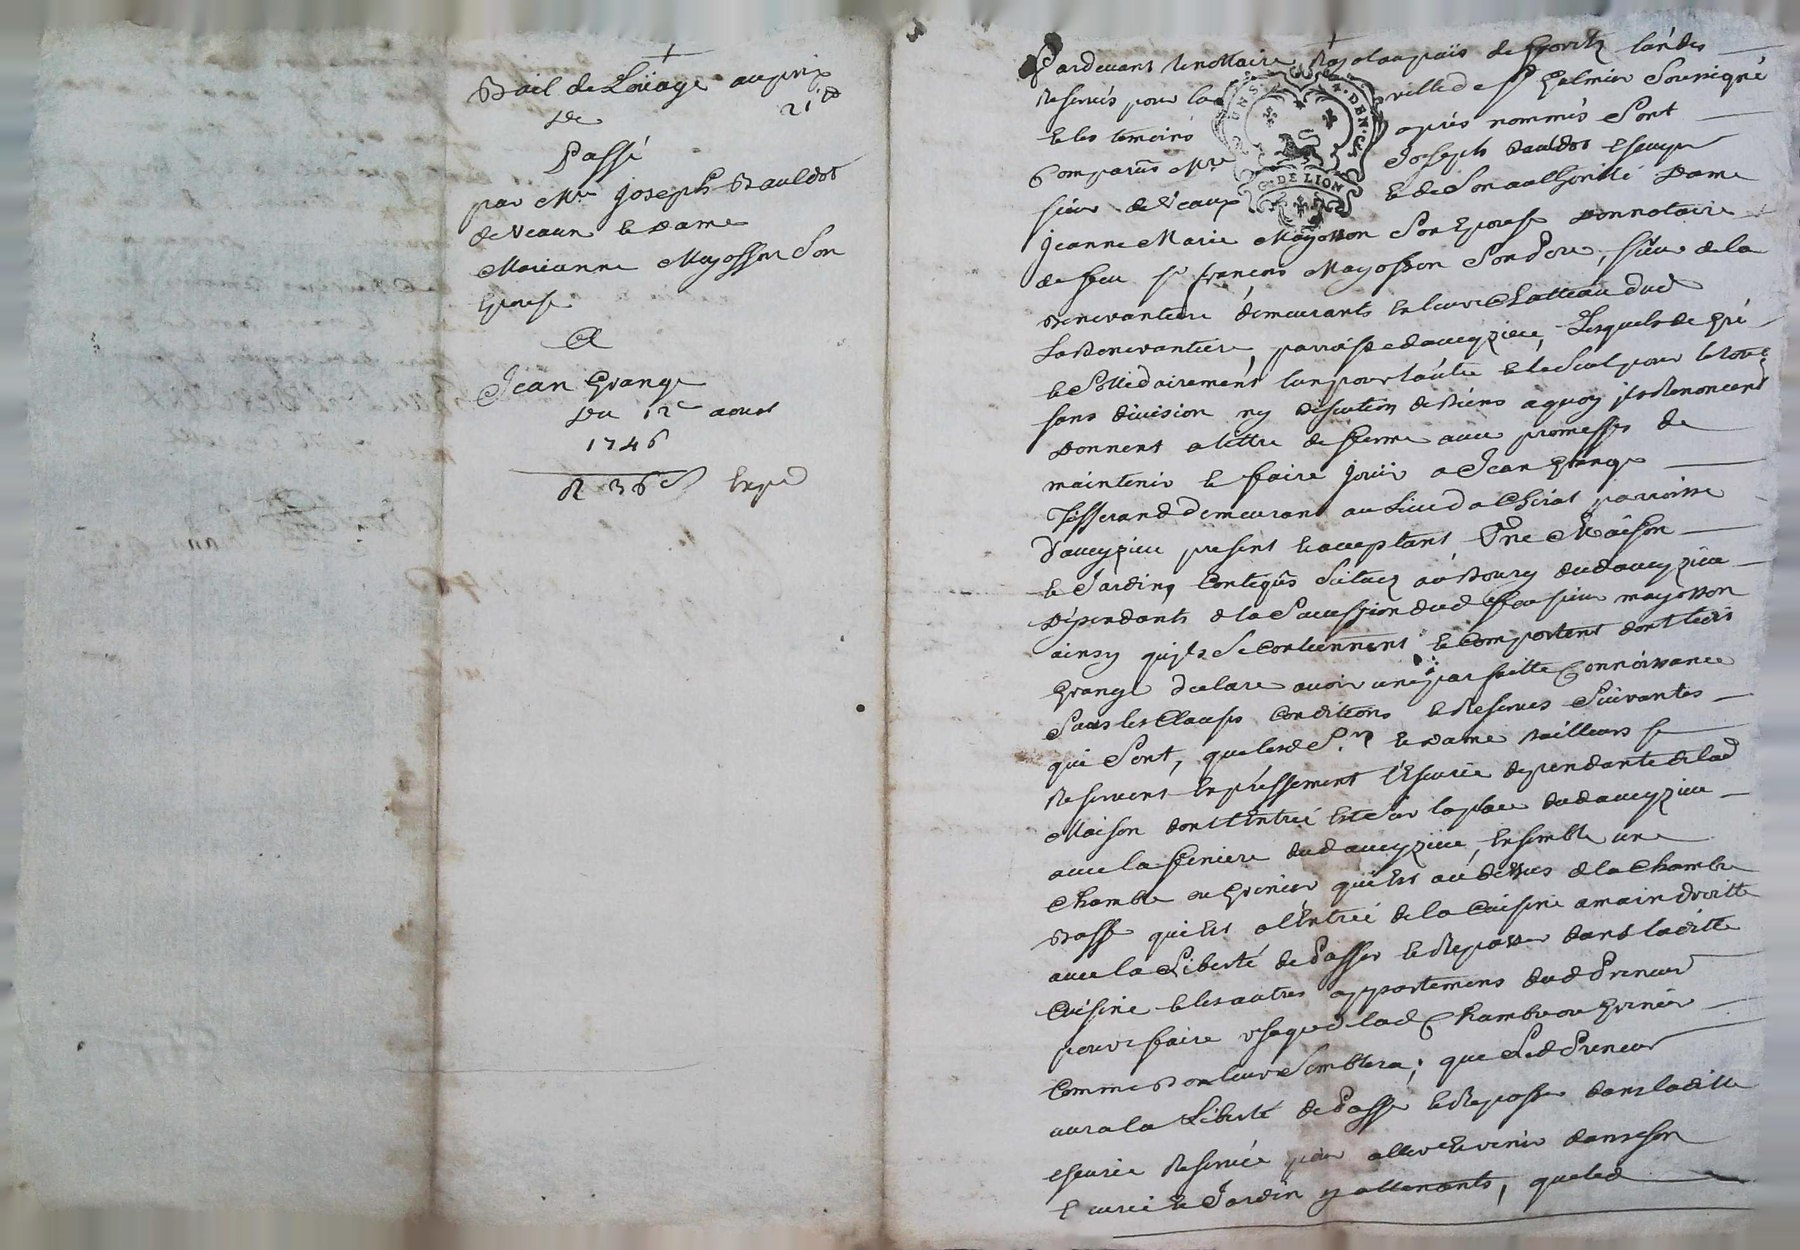 Bail de Loüage au prix
de 21ᵗᵗ
Passé
par Mre Joseph Bauldot
de Veaux et Dame
Marianne Mayosson Son
Epouse
A
Jean Grange
Du 12e aoust
1746
R 36 s Exped
Pardevant le nottaire Royal au païs de forestz landes
Reservés pour la ville de St Galmier Soussigné
et les temoins après nommés Sont
Comparus Mre Joseph Bauldot Escuyer
sieur de Veaux et de Son authorité Dame
Jeanne Marie Mayosson Son Epouse Donnataire
de feu sr françois Mayosson Son Pere, sieur de la
Benevantiere demeurants en leur Chatteau dud
La Benevantiere, parroisse d'aveyzieu, Lesquels de gré
et Sollidairement l'un pour l'autre et le Seul pour le tout
sans division ny discution de Biens a quoy ils Renoncent
Donnent a tittre de ferme avec promesses de
maintenir et faire Jouir a Jean Grange
Tisserand demeurant au Lieu da Chirat parroisse
d'aveyzieu present et acceptant Une Maison
et Jardin, Contigus Scituez au Bourg dud aveyzieu
Dépendants de la Succession dud feu sieur mayosson
ainsy qu'ils Se Contiennent et Comportent dont led
Grange declare avoir une parfaitte Connoissance
Sous les Clauses Conditions et Reserves Suivantes
qui Sont, que lesd Sr et Dame Bailleurs se
Reservent Expressement l'Escurie dependante de lad
Maison dont l'Entrée Est Sur la place dud aveyzieu
avec la feniere dud aveyzieu, Ensemble une
Chambre ou Grenier qui Est au dessus de la Chambre
Basse qui Est a l'Entrée de la Cuisine a main droitte
avec la Liberté de Passer et Repasser dans laditte
Cuisine et les autres appartements dud Preneur
pour faire Usage de lad Chambre ou Grenier
Comme Bon leur Semblera; que Led Preneur
aura la Liberté de Passer et Repasser dans laditte
escurie Reservée pour aller et venir dans son
Ecurie et Jardin y attenants, que led
G. DE LION